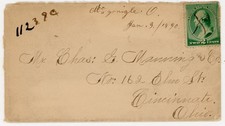 Jan. 9, 1890
11239c
Mr Chas. G. Manning & Co.
No: 162 Elm St
Cincinnati,
Ohio.